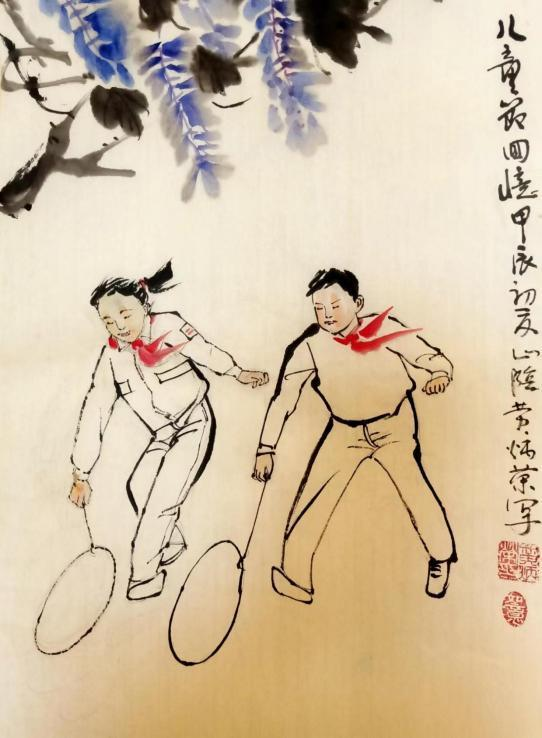 儿童节回憶甲辰初夏山陰黄炳荣写